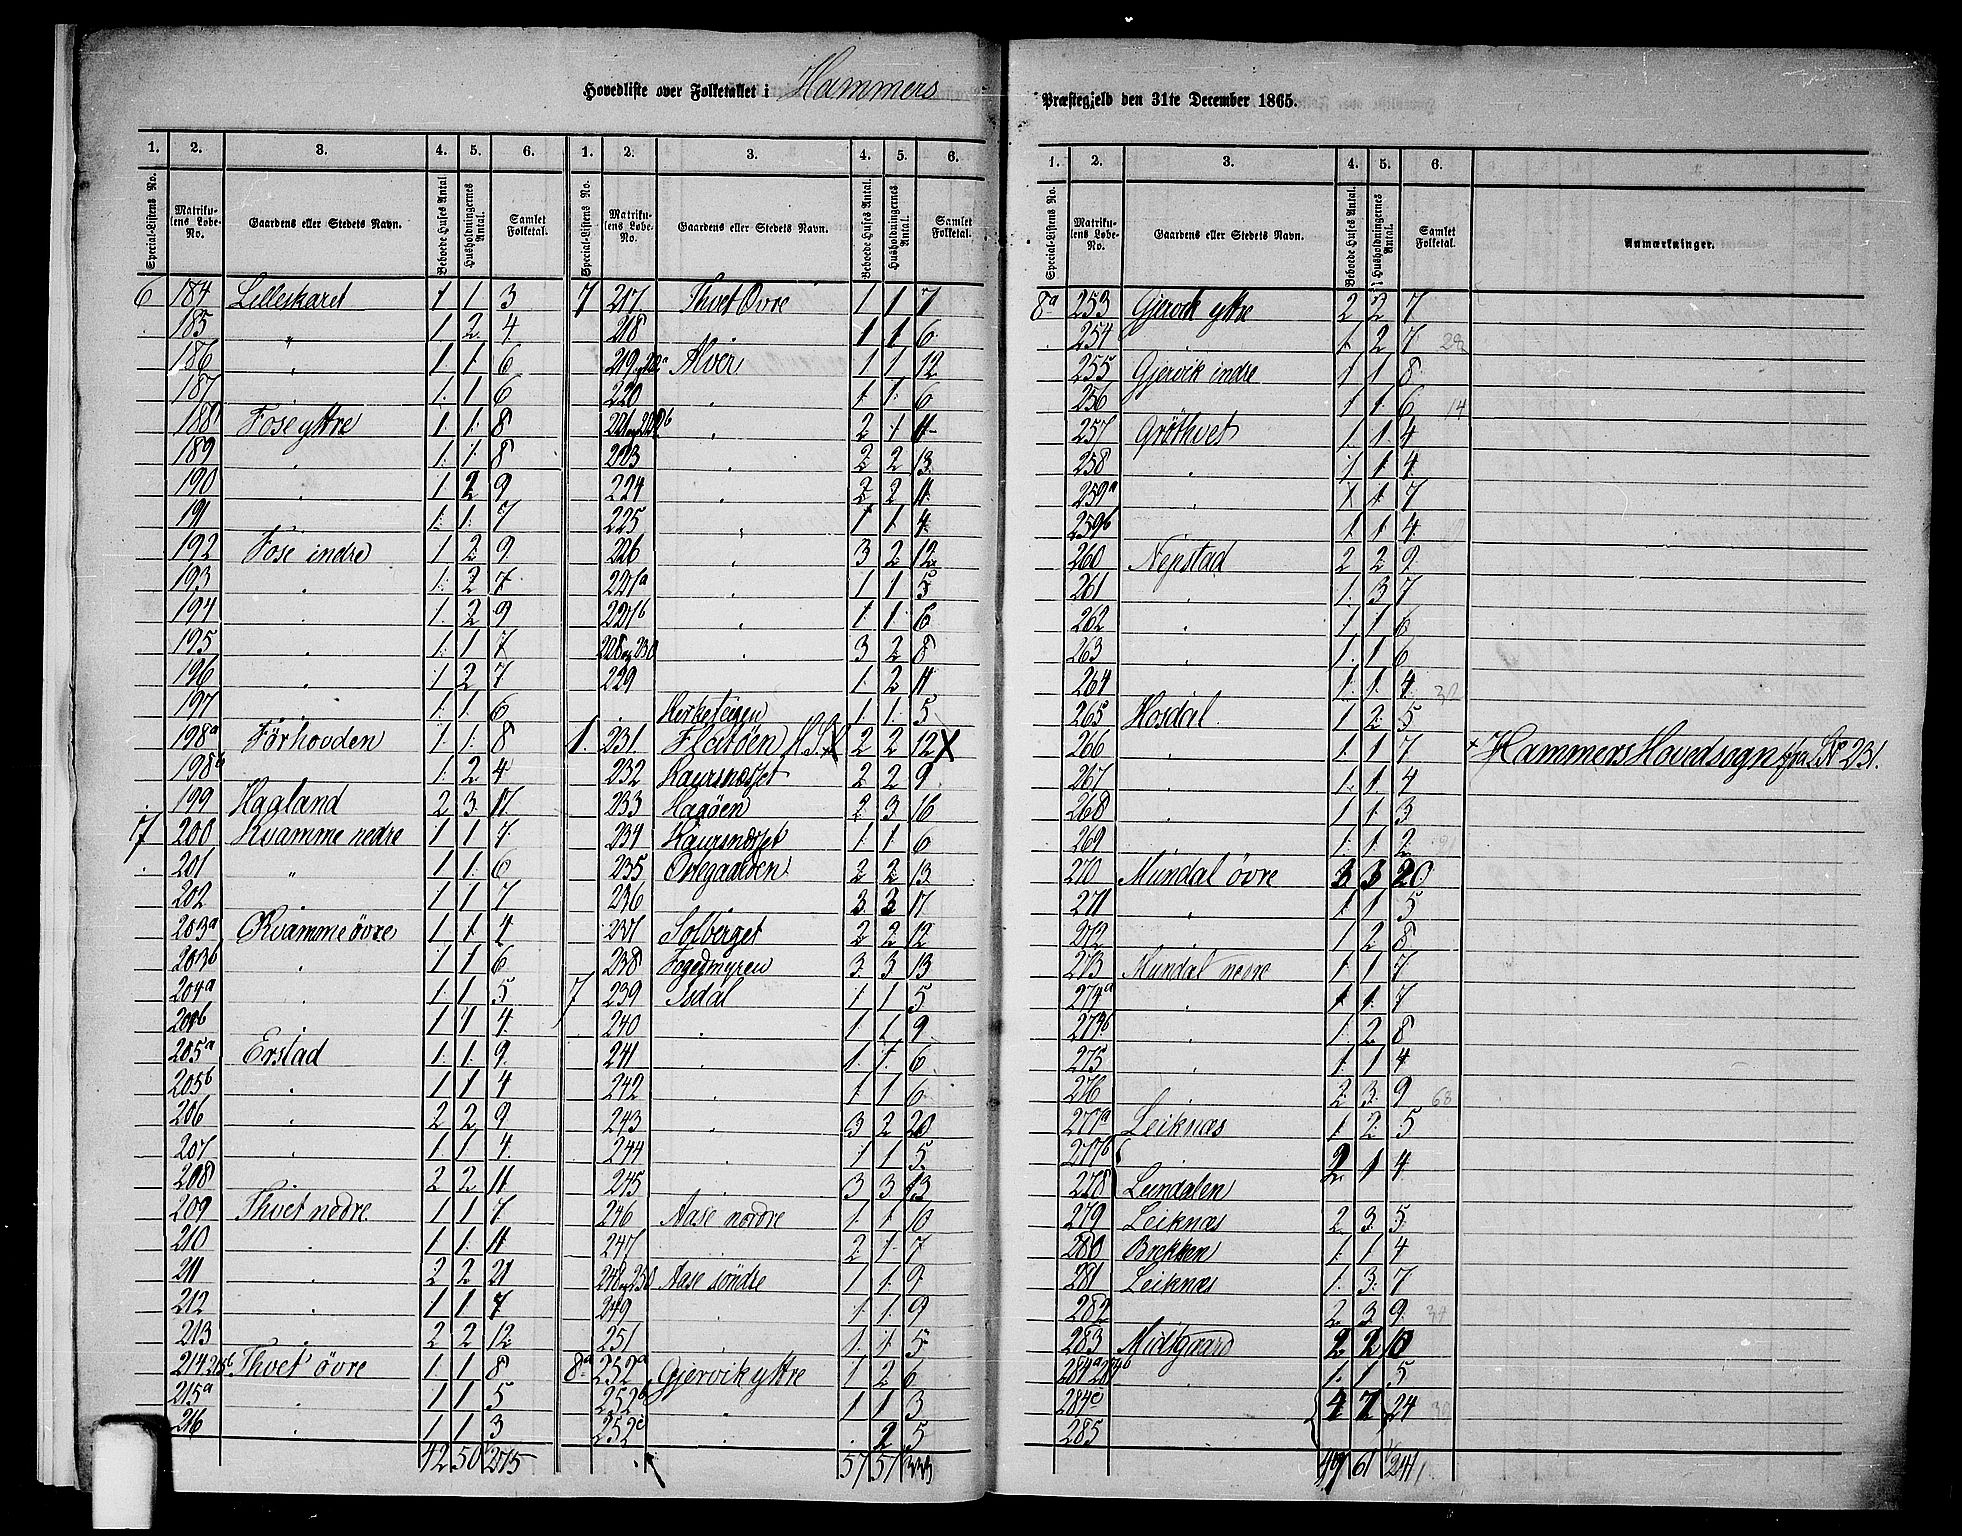 Hovedliste over Folketallet i Hammers
Præstegjeld den 31te December 1865.
1. 2. 3. 4. 5. 6. 1. 2. 3. 4. 5. 6.
Special-Listens No. Matrikulens Løbe-No. Gaardens eller Stedets Navn. Beboede Huses Antal. Husholdningernes Antal. Samlet Folketal. Special-Listens No. Matrikulens Løbe-No. Gaardens eller Stedets Navn. Beboede Huses Antal. Husholdningernes Antal. Samlet Folketal.
6 184 Lilleskaret 1 1 3 7 217 Thvet Øvre 1 1 7
185 " 1 2 4 218 1 1 6
186 " 1 1 6 219 Alver 1 1 12
187 1 1 6 220 " 1 1 6
188 Fose yttre 1 1 8 " 2 1 11
189 " 1 1 8 223 " 2 2 13
190 " 1 2 9 224 " 2 2 11
191 1 1 7 225 " 1 1 4
192 Fose indre 1 2 9 226 3 2 12
193 " 1 2 7 227a 1 1 5
194 " 1 2 9 227b " 1 1 6
195 " 1 1 7 228 og 230 3 2 8
196 " 1 2 7 229 1 2 11
197 1 1 6 Kirketeigen 1 1 5
198a Førhovden 1 1 8 1. 231. Flatøen 2 2 12 X
198b 1 2 4 232 Kaursnæsset 2 2 9
199 Hagland 2 3 17 233 Hagøen 2 3 16
7 200 Kvamme nedre 1 1 7 234 Kaursnæsset 1 1 6
201 " 1 1 6 235 Ostegaarden 2 2 13
202 1 1 7 236 3 3 17
203a Kvamme øvre 1 1 4 237 Solberget 2 2 12
203b " 1 1 6 238 Fogedmyren 3 3 13
204a 1 1 5 7 239 Isdal 1 1 5
204b 1 1 4 240 " 1 1 9
205a Erstad 1 1 9 241 1 1 6
205b " 1 1 4 242 " 1 1 6
206 " 2 2 9 243 3 2 20
207 " 1 1 4 244 1 1 5
208 2 2 11 245 3 3 13
209 Thvet nedre 1 1 7 246 Aase nordre 1 1 10
210 " 1 1 11 247 2 1 7
211 " 2 2 21 248 og 250 Aase søndre 1 1 9
212 " 1 1 7 249 1 1 9
213 2 2 12 251 1 1 5
214 Thvet øvre 1 1 8 8a 252a Gjervik yttre 1 2 6
215a " 1 1 5 252b " 1 1 3
216 " 1 1 3 252c " 2 5
42 50 275 57 57 333
1. 2. 3. 4. 5. 6.
Special-Listens No. Matrikulens Løbe-No. Gaardens eller Stedets Navn. Beboede Huses Antal. Husholdningernes Antal. Samlet Folketal. Anmærkninger.
8a 253 Gjervik yttre 2 2 7
254 " 1 2 7
255 Gjervik indre 1 1 8
256 1 1 6 14
257 Grøthvet 1 1 4
258 " 1 1 4
259a " 1 1 7
259b 1 1 4
260 Nepstad 2 2 9
261 " 1 3 7
262 " 1 1 6
263 " 1 1 6
264 1 1 4 32
265 Hosdal 1 2 5
266 " 1 1 7 + Hammers Hovedsogn fra LNo 231.
267 " 1 1 4
268 " 1 1 3
269 1 1 2
270 Mundal øvre 3 3 20
271 " 1 1 5
272 1 2 8
273 Mundal nedre 1 1 7
274a " 1 1 7
274b " 1 2 8
275 " 1 1 4
276 2 3 9 68
277a Leiknæs 1 2 5
277b " 2 1 4
278 Leindalen
279 Leiknæs 2 3 5
280 Brekken 1 1 4
281 Leiknæs 1 3 7
282 2 3 9 34
283 Midtgaard 2 2 10
284a 284b " 1 1 5
284c 4 7 24
285
49 61 241